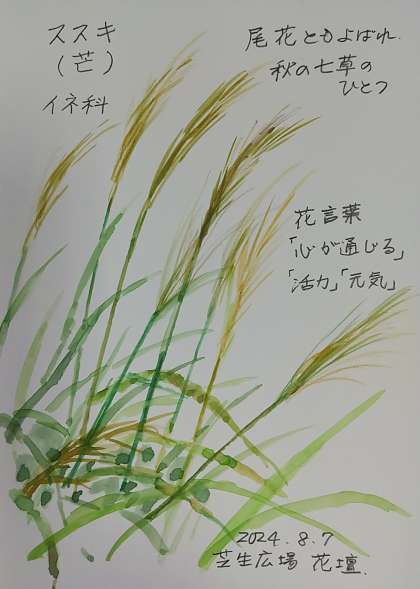 ススキ
(芒)
イネ科
尾花ともよばれ.
秋の七草の
ひとつ
花言葉
「心が通じる」
「活力」「元気」
2024.8.7
芝生広場 花壇.